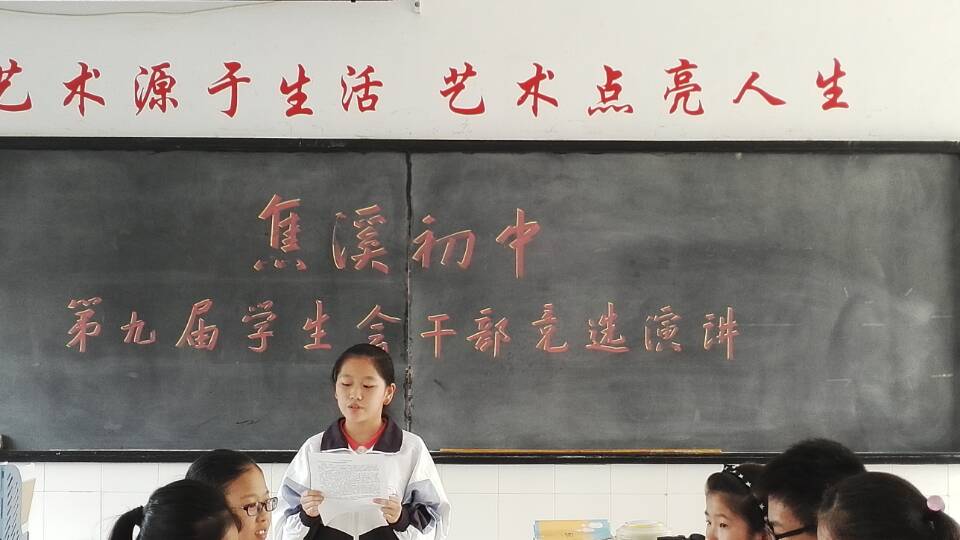 艺术源于生活 艺术点亮人生
焦溪初中
第九届学生会干部竞选演讲